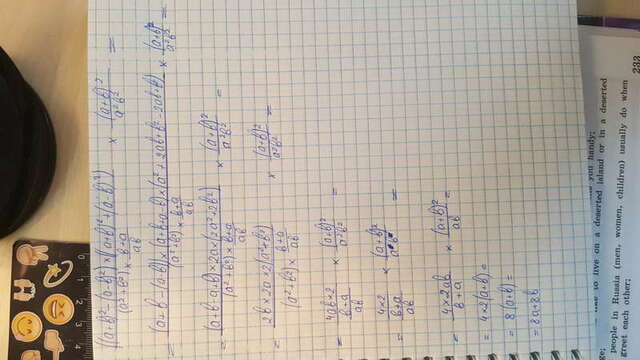 ((a+b)²-(a-b)²)×((a+b)²+(a-b)²) / ((a²+b²)×(b+a)/ab) × (a+b)²/a²b² =
= (a+b-(a-b))×(a+b+a-b)×(a²+2ab+b²-2ab+b²) / ((a²+b²)×(b+a)/ab) × (a+b)²/a²b² =
= (a+b-a+b)×2a×(2a²+2b²) / ((a²+b²)×(b+a)/ab) × (a+b)²/a²b² =
= 2b×2a×2(a²+b²) / ((a²+b²)×(b+a)/ab) × (a+b)²/a²b² =
= 4ab×2 / ((b+a)/ab) × (a+b)²/a²b² =
= 4×2 / ((b+a)/ab) × (a+b)²/ab =
= 4×2ab/(b+a) × (a+b)²/ab =
= 4×2(a+b) =
= 8(a+b) =
= 8a+8b
you handy;
like to live on a deserted island or in a deserted
ge;
people in Russia (men, women, children) usually do when
greet each other;
233
4 3 2